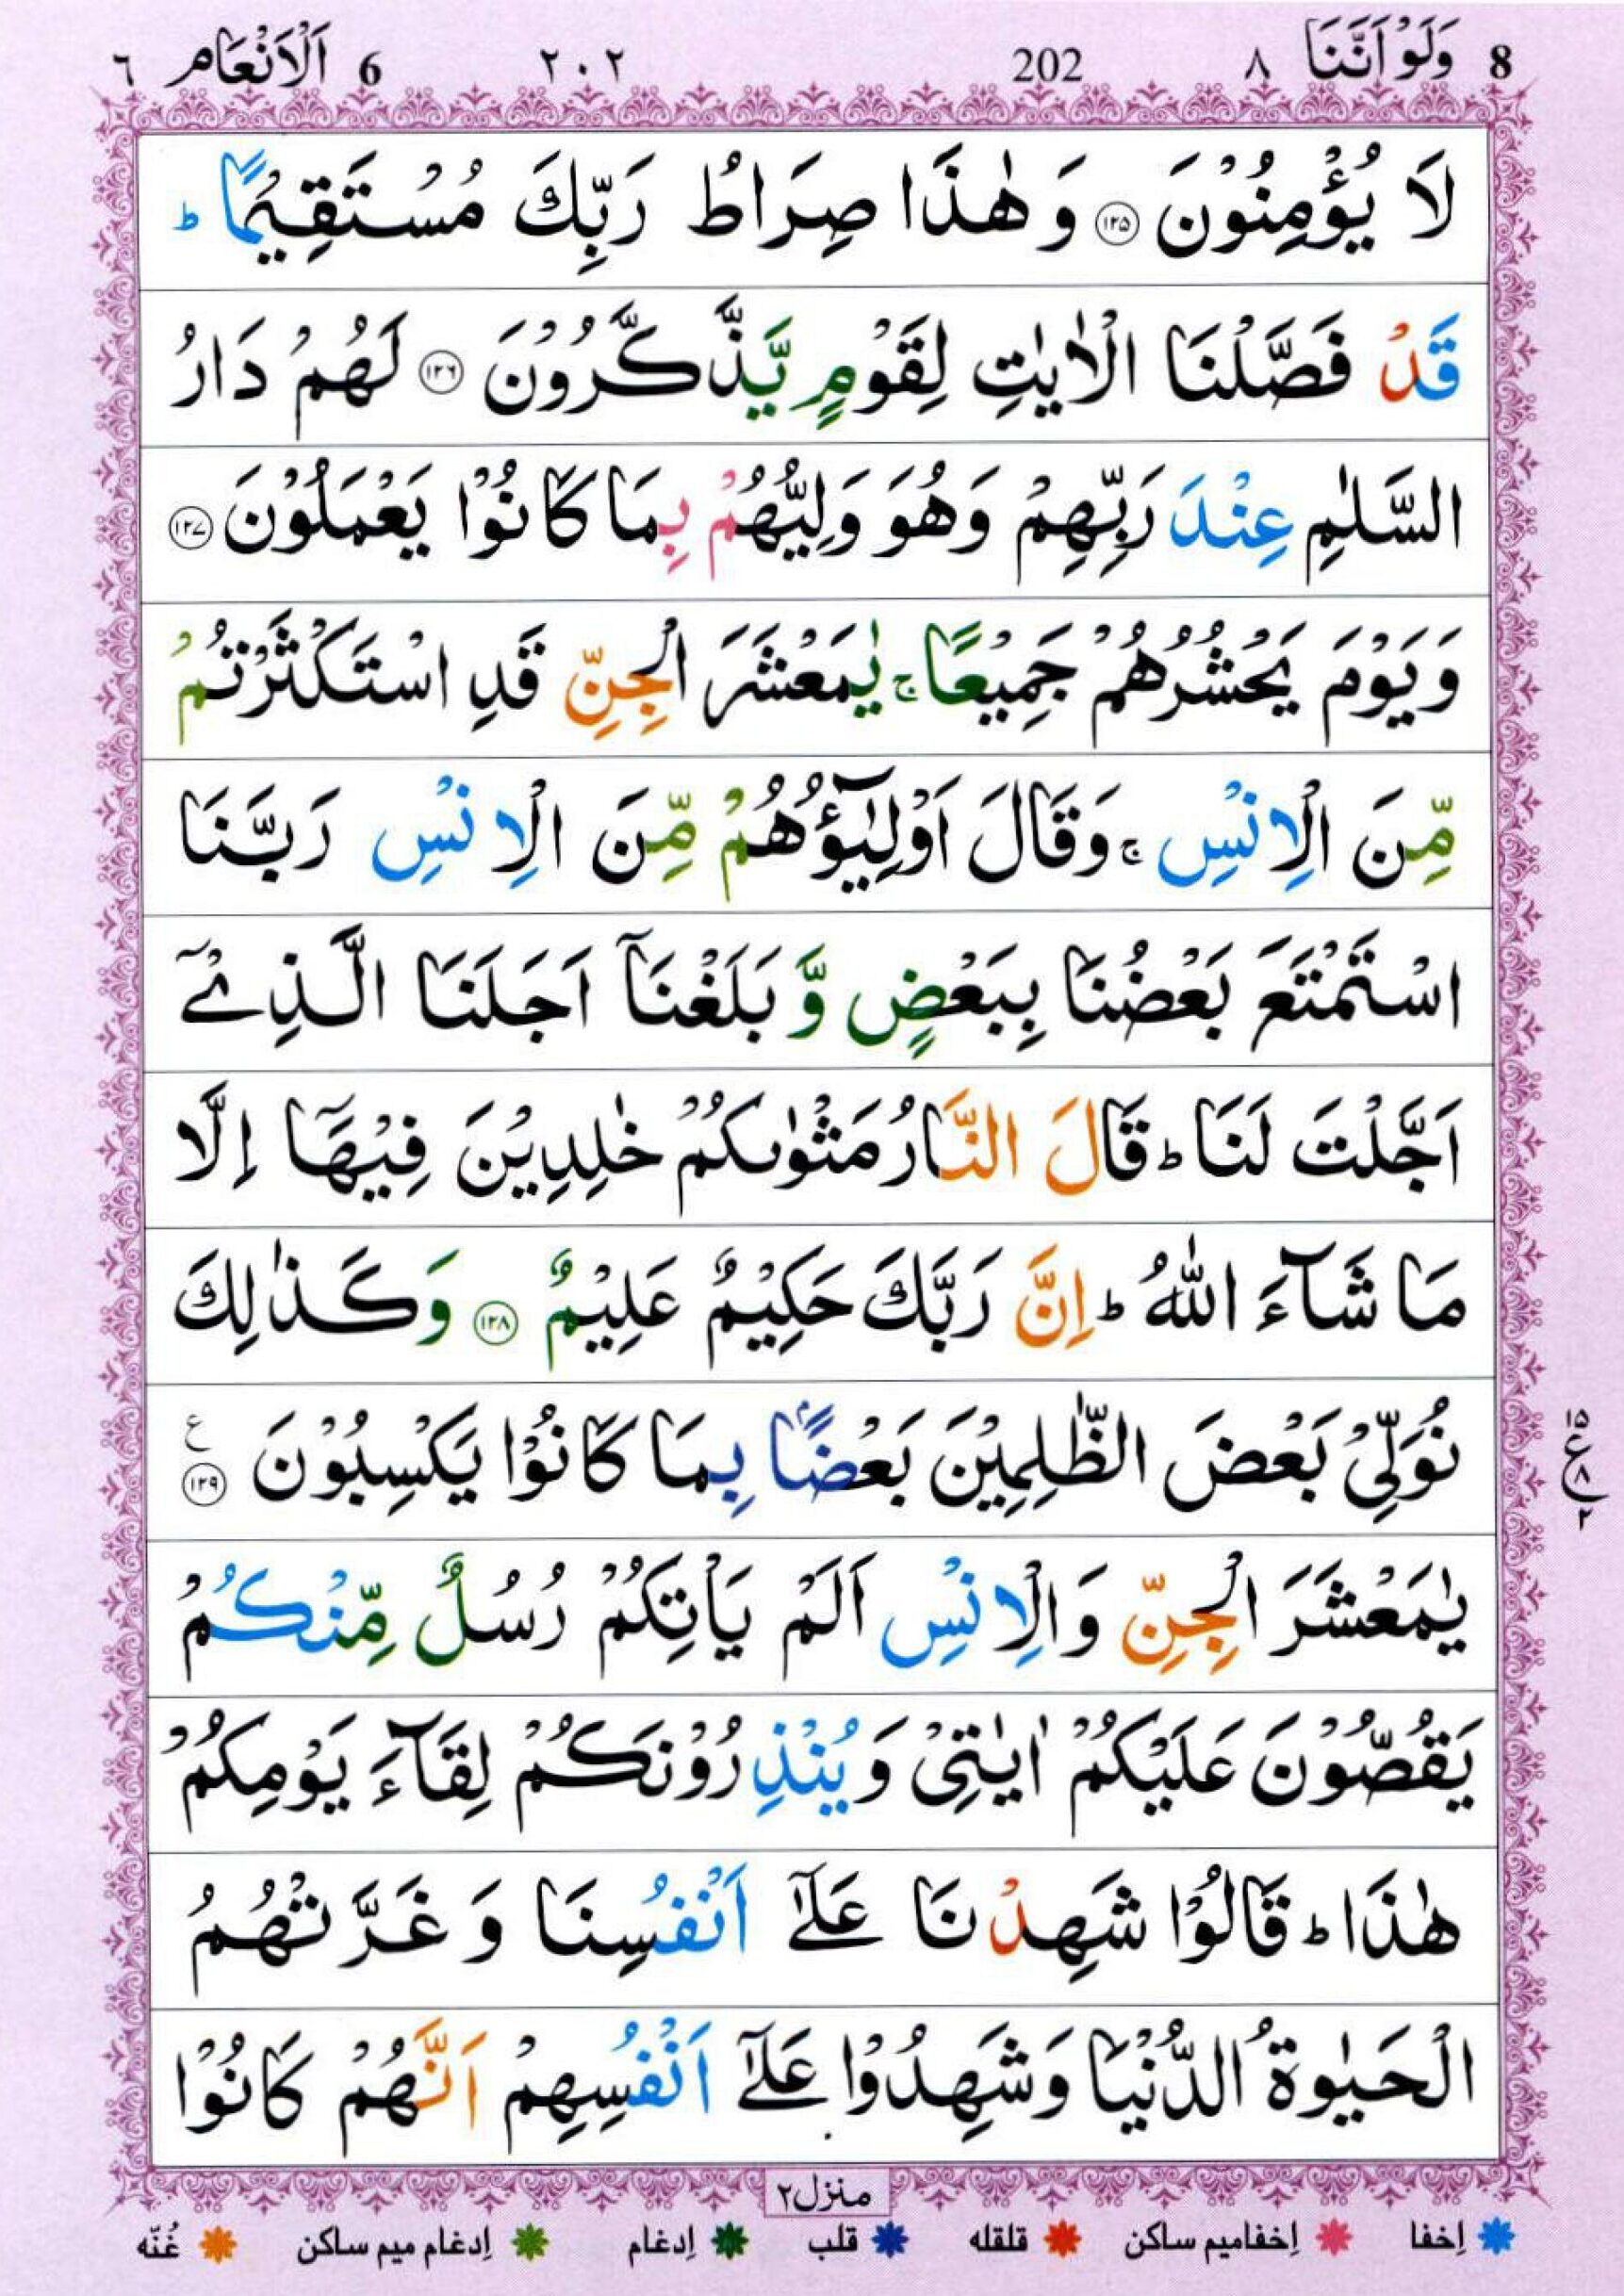 8 وَلَوْ اَنَّنَا ٨ 202 ٢٠٢ 6 اَلْاَنْعَام ٦
لَا يُؤْمِنُوْنَ ﴿١٢٥﴾ وَ هٰذَا صِرَاطُ رَبِّكَ مُسْتَقِيْمًا ؕ
قَدْ فَصَّلْنَا الْاٰيٰتِ لِقَوْمٍ يَّذَّكَّرُوْنَ ﴿١٢٦﴾ لَهُمْ دَارُ
السَّلٰمِ عِنْدَ رَبِّهِمْ وَهُوَ وَلِيُّهُمْ بِمَا كَانُوْا يَعْمَلُوْنَ ﴿١٢٧﴾
وَيَوْمَ يَحْشُرُهُمْ جَمِيْعًا ۚ يٰمَعْشَرَ الْجِنِّ قَدِ اسْتَكْثَرْتُمْ
مِّنَ الْاِنْسِ ۚ وَقَالَ اَوْلِيٰٓؤُهُمْ مِّنَ الْاِنْسِ رَبَّنَا
اسْتَمْتَعَ بَعْضُنَا بِبَعْضٍ وَّ بَلَغْنَاۤ اَجَلَنَا الَّذِيْۤ
اَجَّلْتَ لَنَا ؕ قَالَ النَّارُ مَثْوٰىكُمْ خٰلِدِيْنَ فِيْهَاۤ اِلَّا
مَا شَآءَ اللّٰهُ ؕ اِنَّ رَبَّكَ حَكِيْمٌ عَلِيْمٌ ﴿١٢٨﴾ وَكَذٰلِكَ
نُوَلِّيْ بَعْضَ الظّٰلِمِيْنَ بَعْضًاۢ بِمَا كَانُوْا يَكْسِبُوْنَ ﴿١٢٩﴾ ع
١٥ ع ٨ ٢
يٰمَعْشَرَ الْجِنِّ وَالْاِنْسِ اَلَمْ يَاْتِكُمْ رُسُلٌ مِّنْكُمْ
يَقُصُّوْنَ عَلَيْكُمْ اٰيٰتِيْ وَيُنْذِرُوْنَكُمْ لِقَآءَ يَوْمِكُمْ
هٰذَا ؕ قَالُوْا شَهِدْنَا عَلٰۤى اَنْفُسِنَا وَ غَرَّتْهُمُ
الْحَيٰوةُ الدُّنْيَا وَشَهِدُوْا عَلٰۤى اَنْفُسِهِمْ اَنَّهُمْ كَانُوْا
منزل ٢
اِخفا اِخفا میم ساکن قلقله قلب اِدغام اِدغام میم ساکن غُنّه